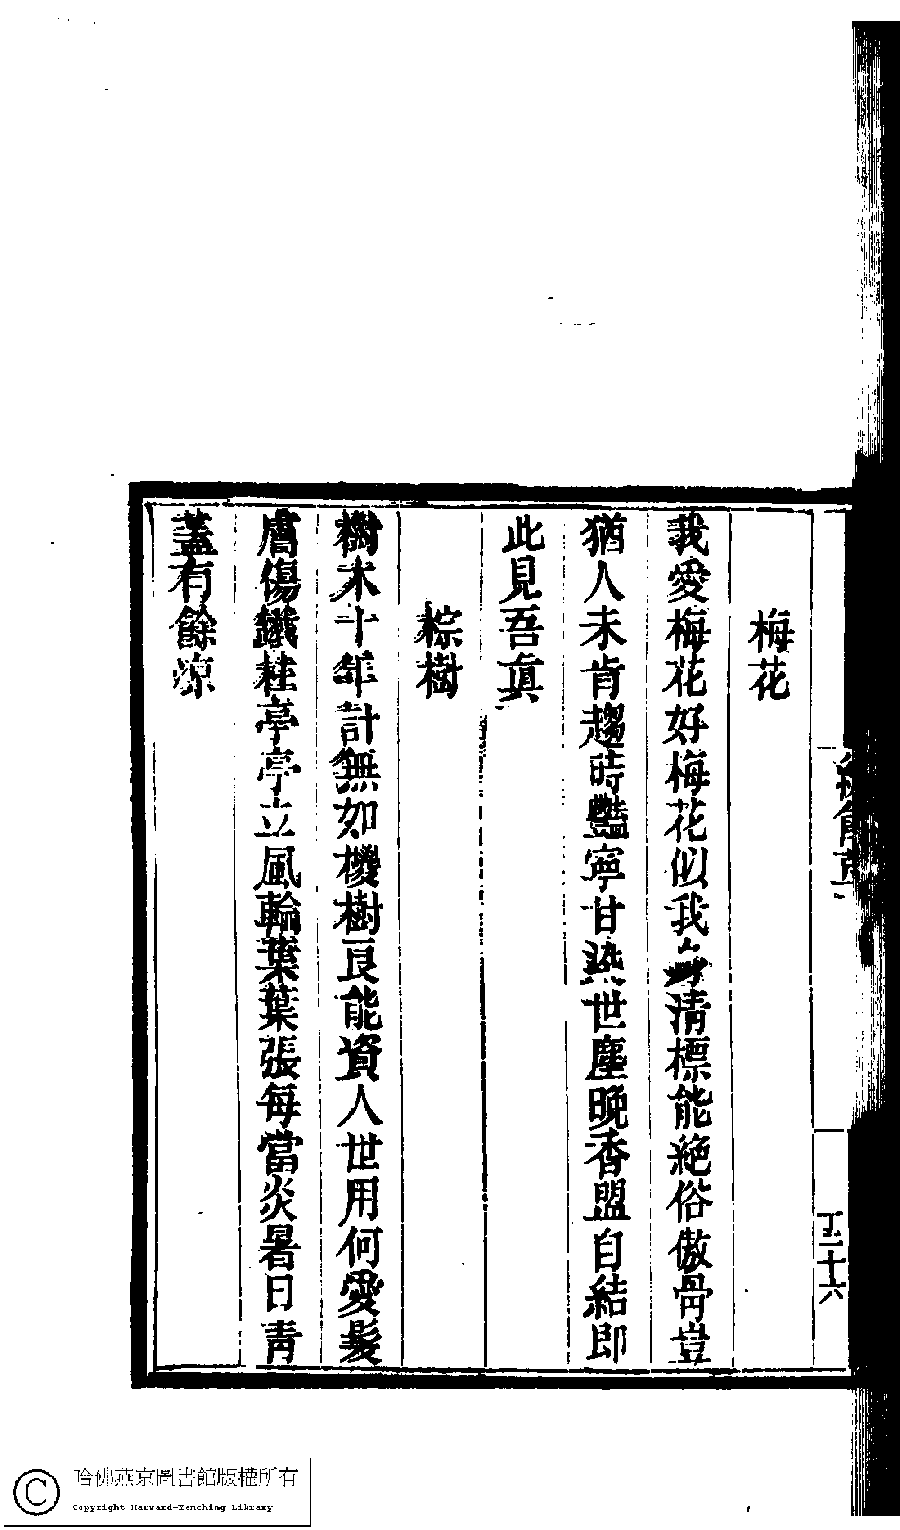 梅花
我愛梅花好梅花似我清標能絕俗傲骨豈
猶人未肯趨時豔寧甘染世塵晚香盟自結即
此見吾眞
棕樹
樹木十年計無如椶樹良能資人世用何愛髮
膚傷鐵柱亭亭立風輪葉葉張每當炎暑日青
蓋有餘凉
五十六
哈佛燕京圖書館版權所有
Copyright Harvard-Yenching Library